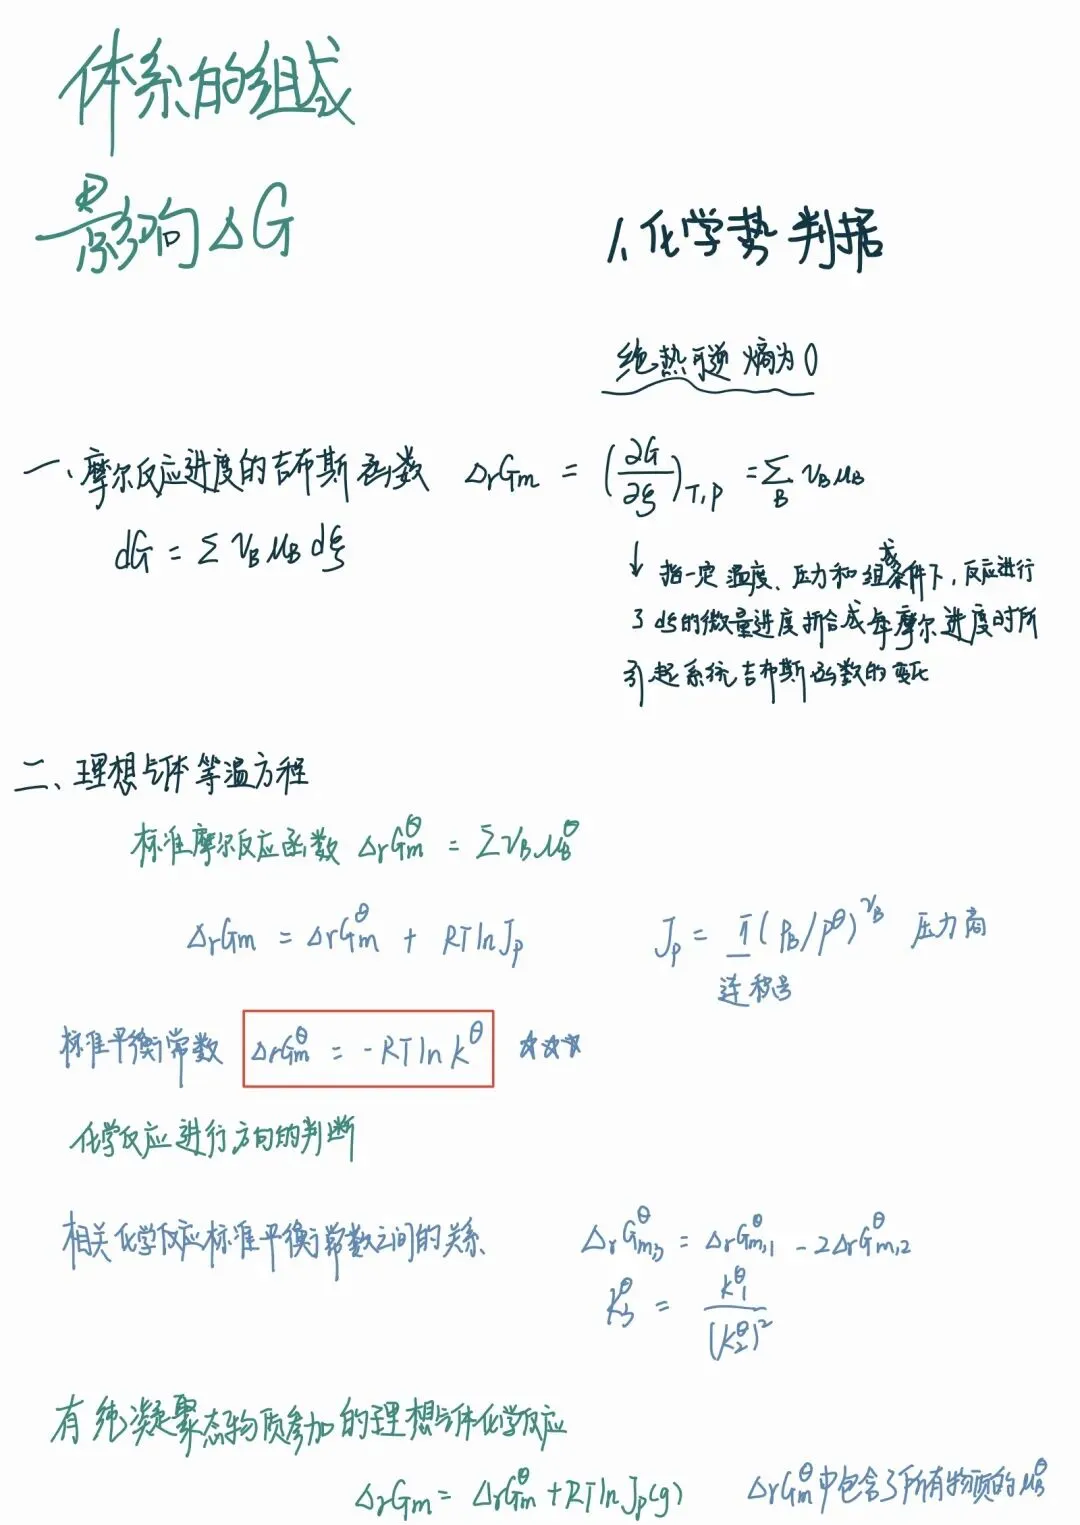 体系的组成
影响ΔG
1.化学势判据
绝热可逆 熵为0
一、摩尔反应进度的吉布斯函数 ΔrGm = (∂G/∂ξ)T,p = ΣB νBμB
dG = Σ νBμB dξ
↓ 指一定温度、压力和组成条件下,反应进行
了dξ的微量进度折合成每摩尔进度时所
引起系统吉布斯函数的变化
二、理想气体等温方程
标准摩尔反应函数 ΔrGm^θ = ΣνBμB^θ
ΔrGm = ΔrGm^θ + RTlnJp Jp = π(pB/p^θ)^νB 压力商
连积号
标准平衡常数 ΔrGm^θ = -RTlnk^θ ☆☆☆
化学反应进行方向的判断
相关化学反应标准平衡常数之间的关系 ΔrGm,3^θ = ΔrGm,1^θ - 2ΔrGm,2^θ
K3^θ = k1^θ/(k2^θ)^2
有纯凝聚态物质参加的理想气体化学反应
ΔrGm = ΔrGm^θ + RTlnJp(g) ΔrGm^θ中包含了所有物质的μB^θ